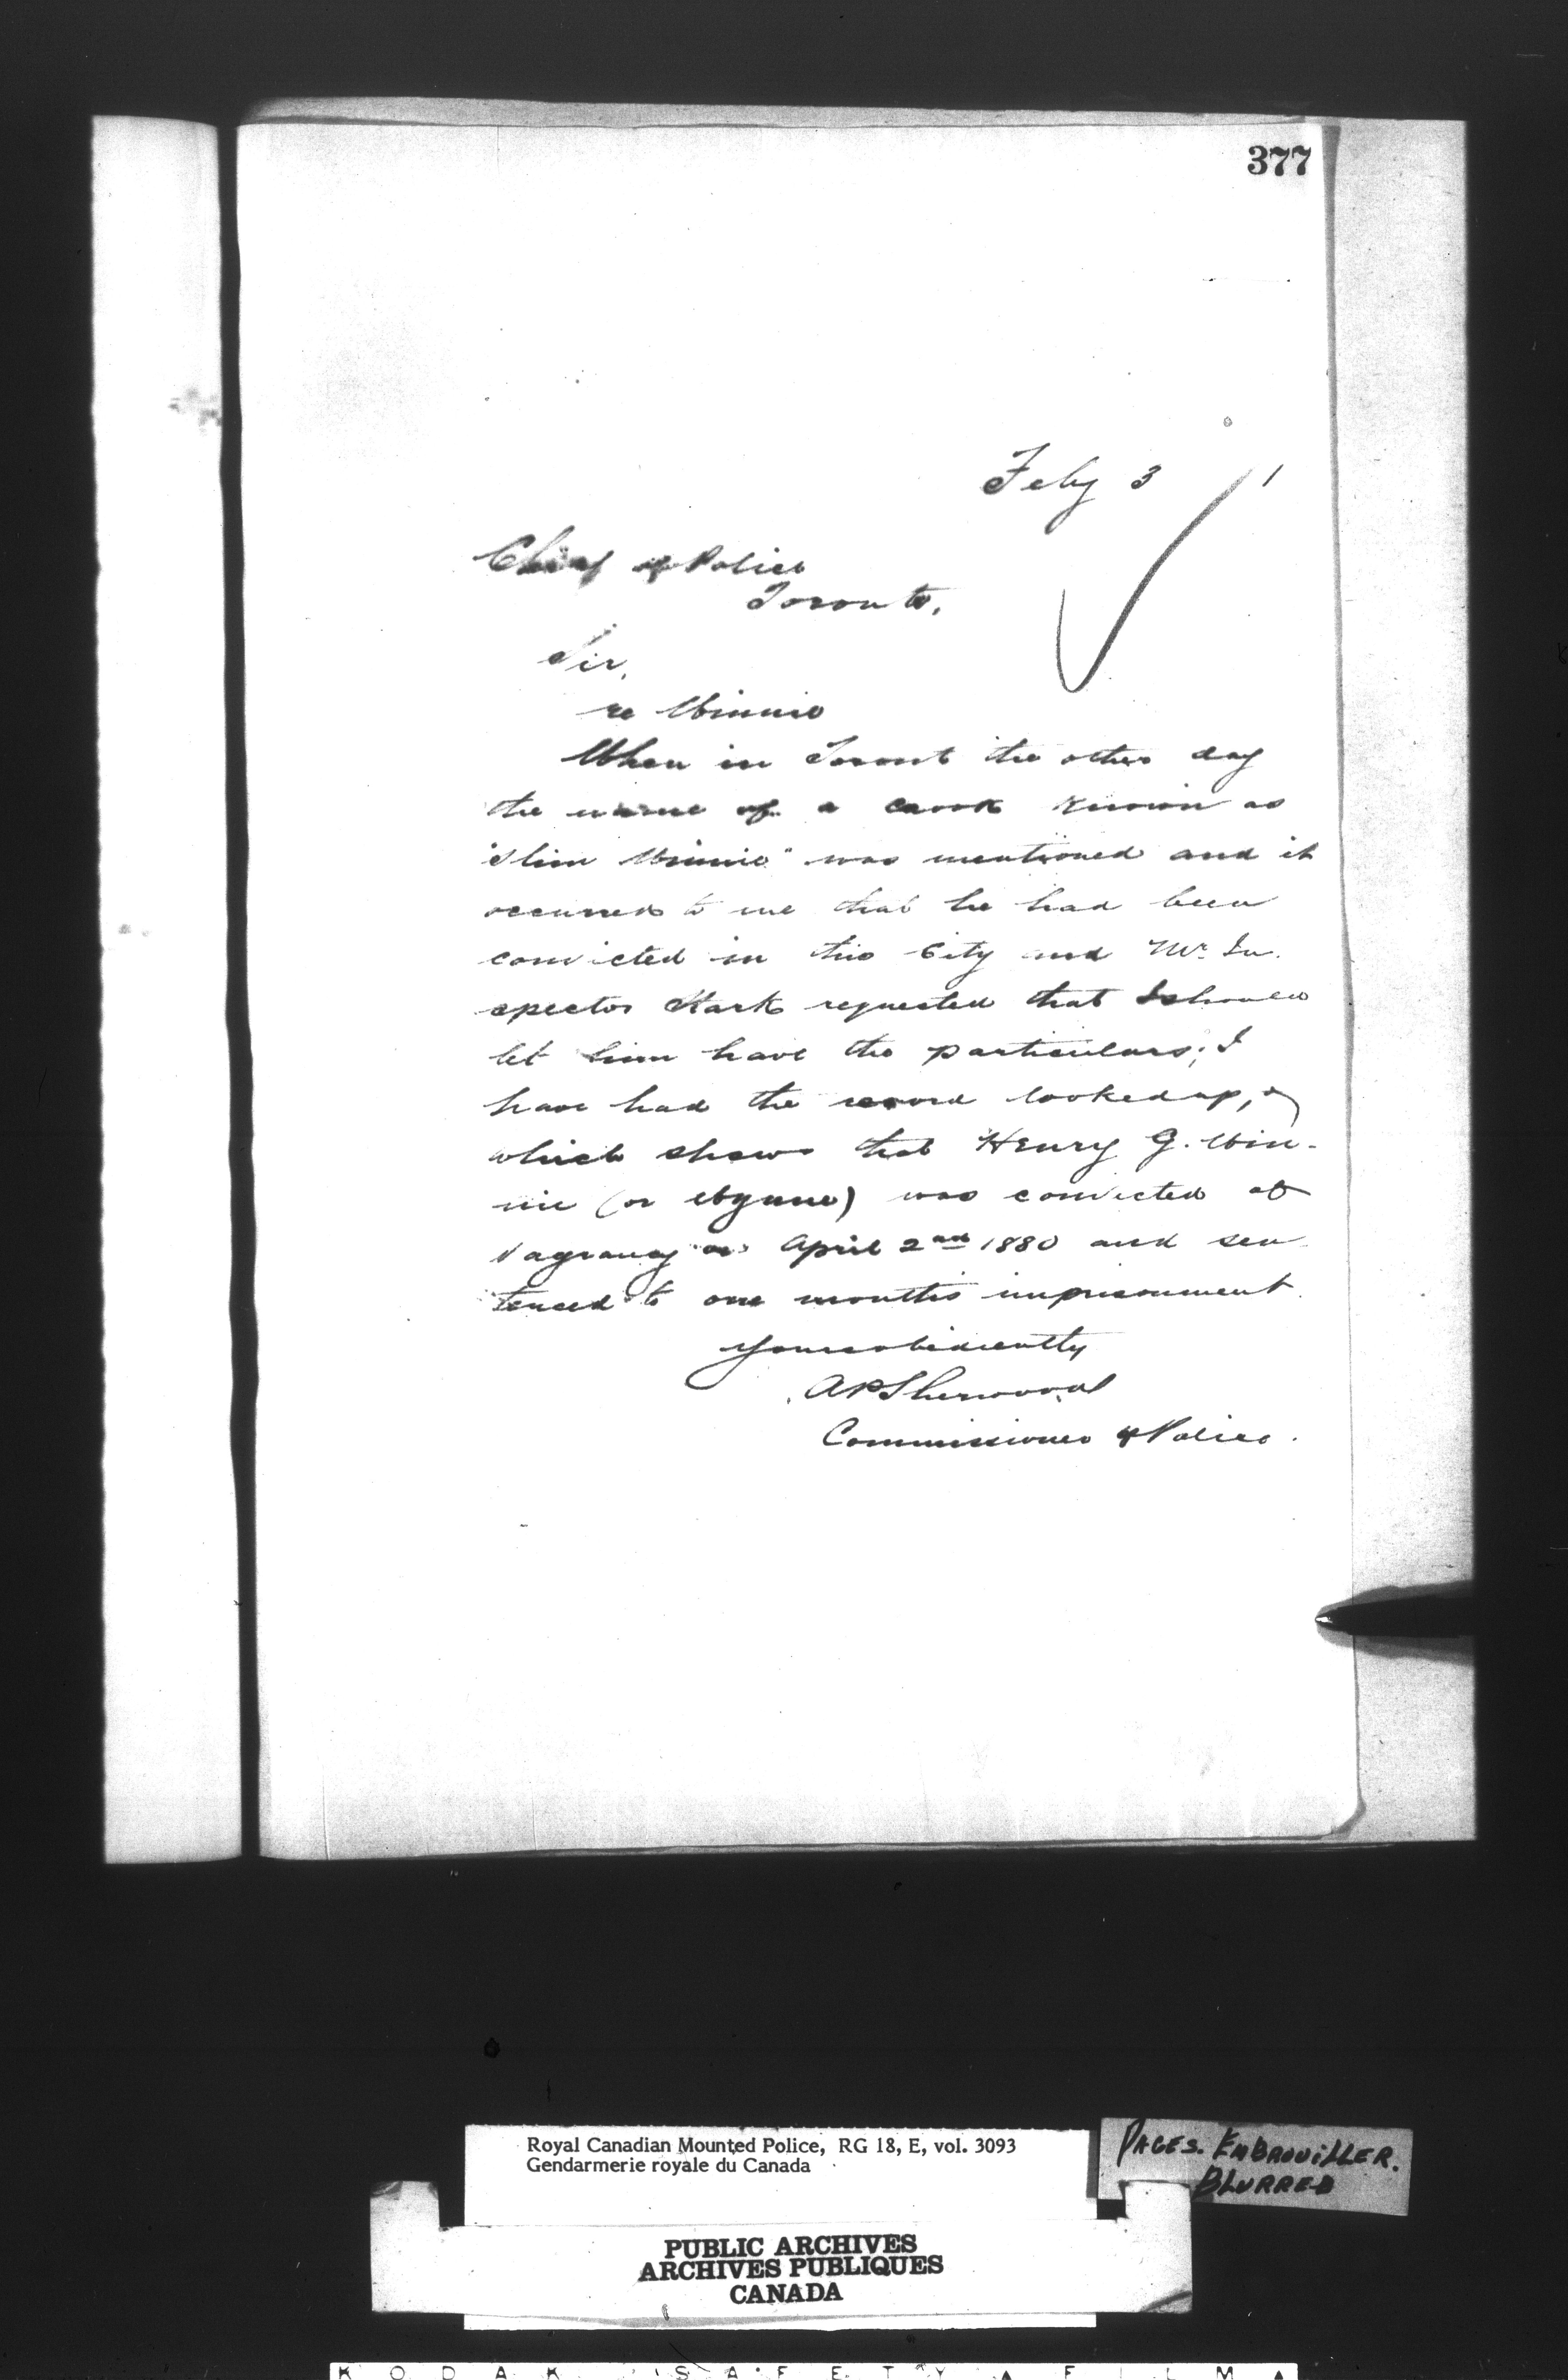 377
Feby 3 1
Chief of Police
Toronto,
Sir,
re Winnie
When in Toronto the other day
the name of a crook known as
"Slim Winnie" was mentioned and it
occurred to me that he had been
convicted in this City and Mr. In-
spector Stark requested that I should
let him have the particulars; I
have had the record looked up,
which shews that Henry G. Win-
nie (or Wynne) was convicted of
vagrancy on April 2nd 1880 and sen-
tenced to one months imprisonment.
Yours obediently
AP Sherwood
Commissioner of Police.
Royal Canadian Mounted Police, RG 18, E, vol. 3093
Gendarmerie royale du Canada
PAGES. EMBROUILLER.
BLURRED
PUBLIC ARCHIVES
ARCHIVES PUBLIQUES
CANADA
KODAK SAFETY FILM